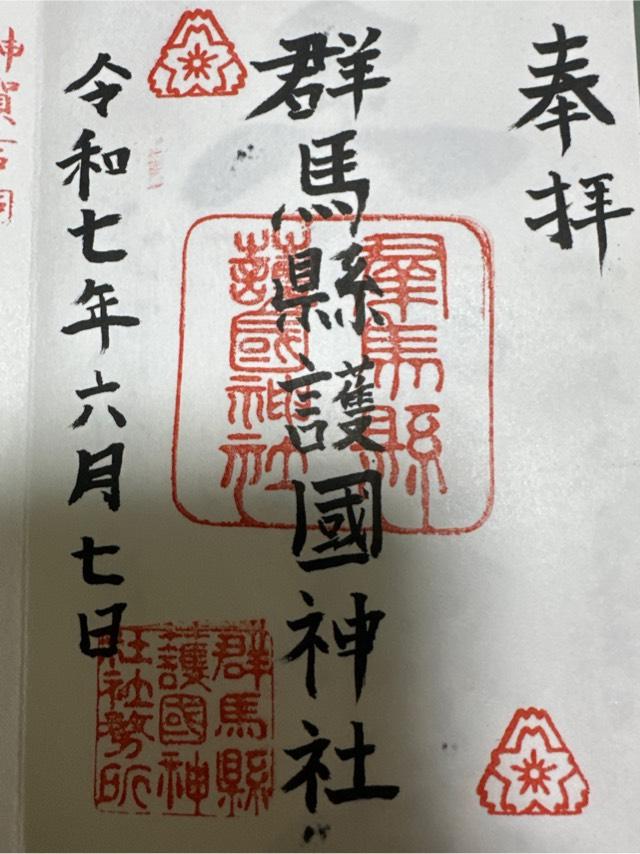 奉拝
群馬縣護國神社
羣馬縣
護國神社
令和七年六月七日
群馬縣
護國神
社社務所